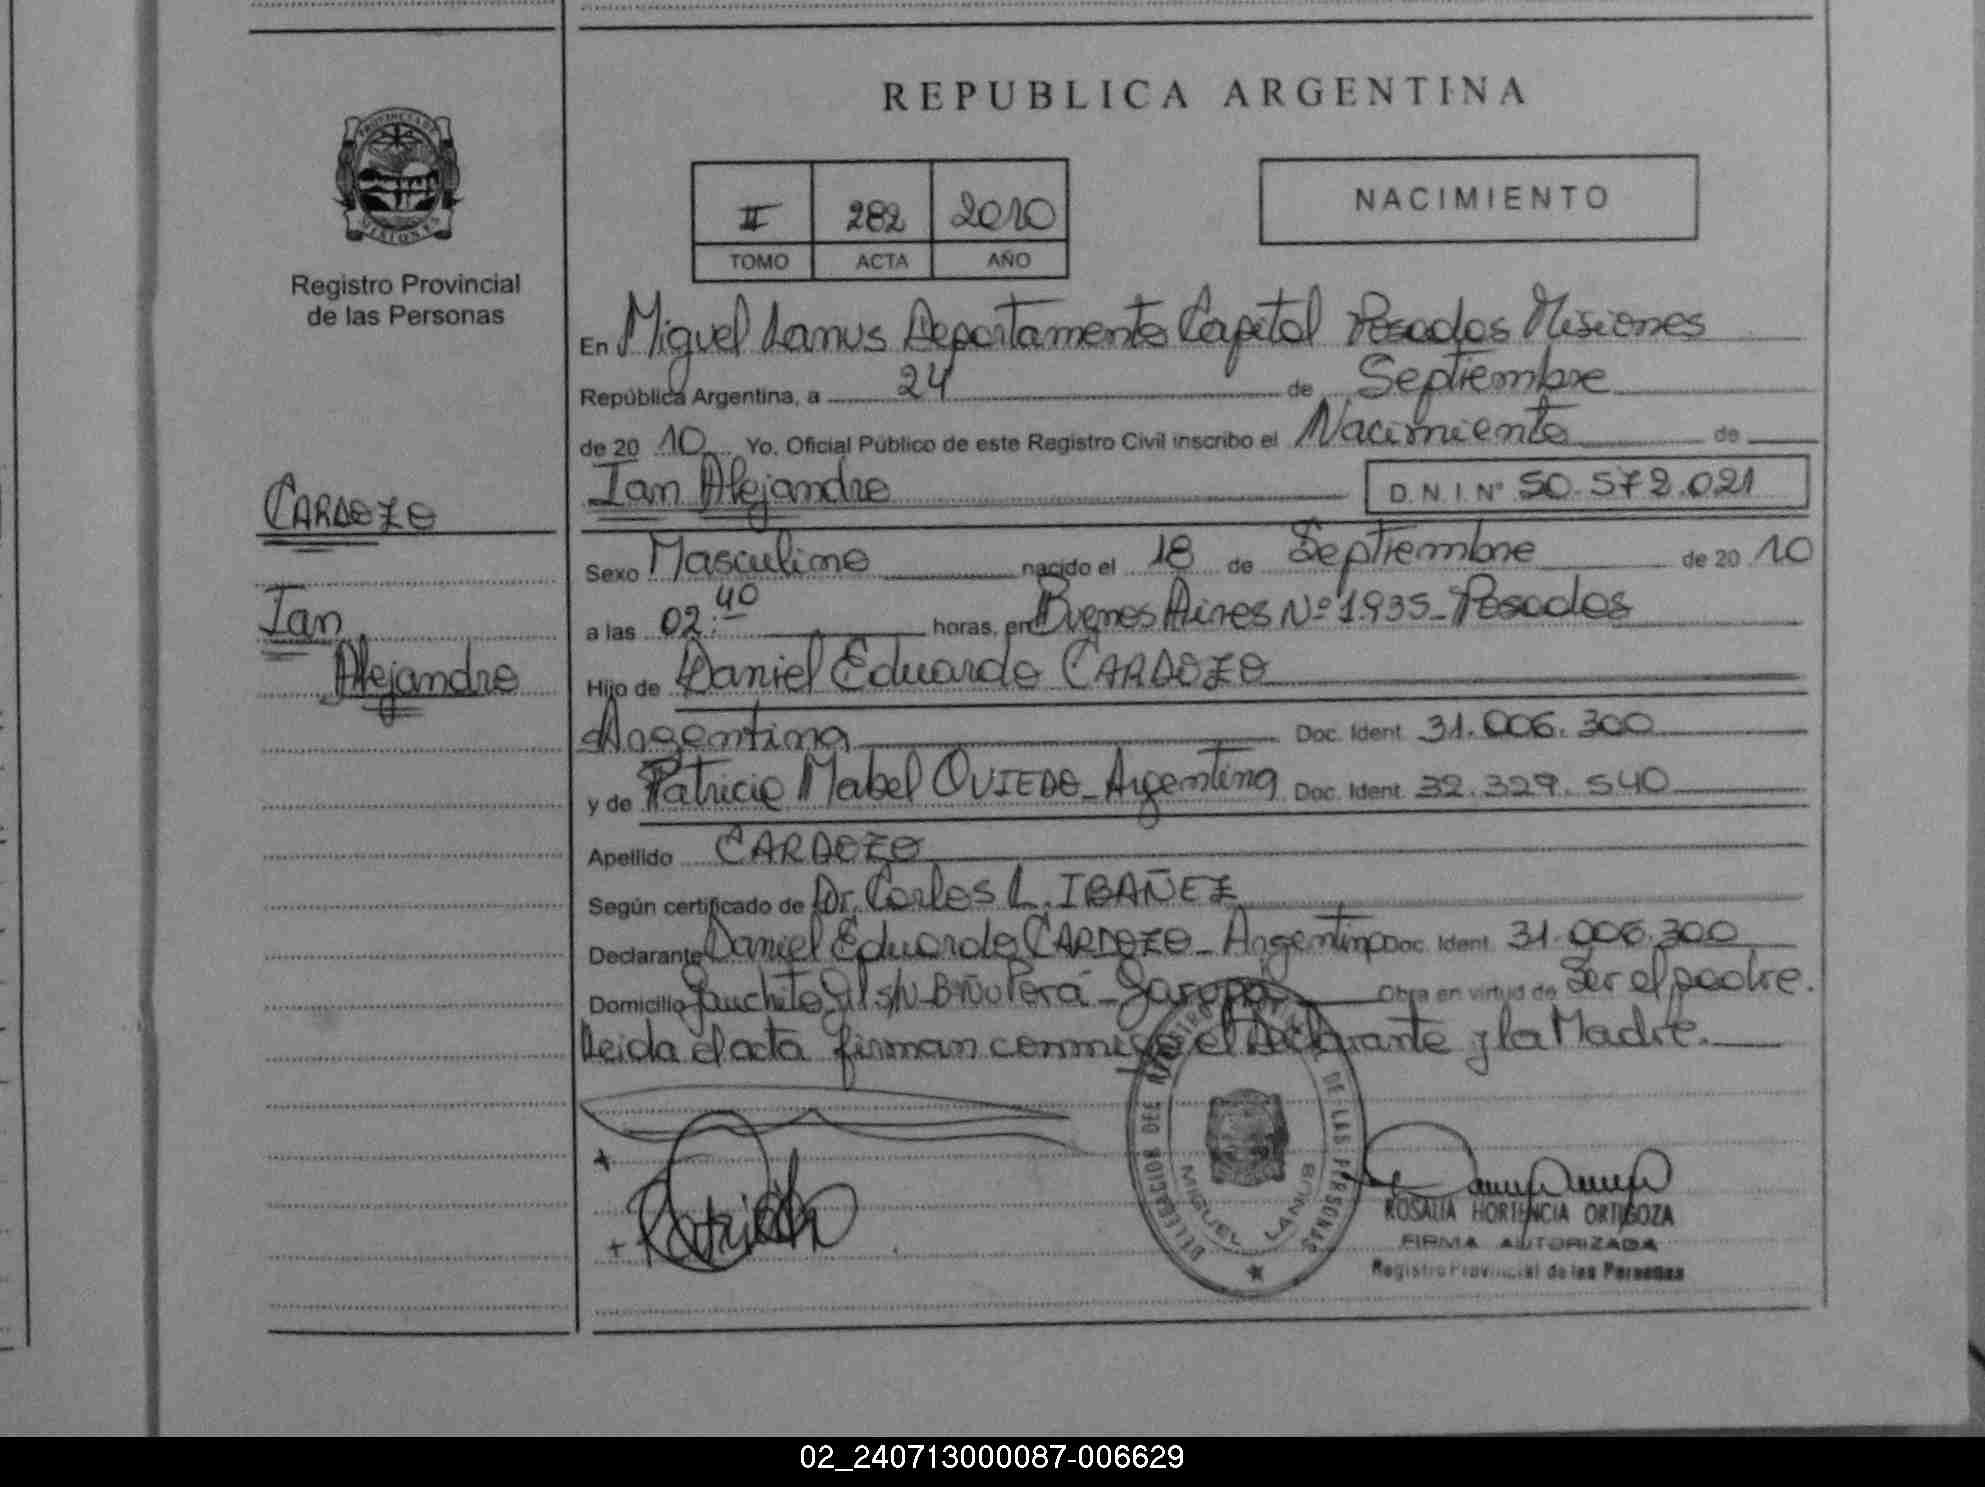 REPUBLICA ARGENTINA
PROVINCIA DE
MISIONES
Registro Provincial
de las Personas
II 282 2010
TOMO ACTA AÑO
NACIMIENTO
En Miguel Lanus Departamento Capital Posadas Misiones
República Argentina, a 24 de Septiembre
de 20 10 Yo. Oficial Público de este Registro Civil inscribo el Nacimiento de
Ian Alejandro D.N.I. Nº 50.572.021
CARDOZO
Ian
Alejandro
Sexo Masculino nacido el 18 de Septiembre de 20 10
a las 02:40 horas, en Buenos Aires Nº 1935 - Posadas
Hijo de Daniel Eduardo CARDOZO
Argentina Doc. Ident. 31.006.300
y de Patricia Mabel OVIEDO - Argentina Doc. Ident. 32.329.540
Apellido CARDOZO
Según certificado de Dr. Carlos L. IBAÑEZ
Declarante Daniel Eduardo CARDOZO - Argentino Doc. Ident. 31.006.300
Domicilio Gauchito Gil s/N - Bº Ñu Porá - Garupá Obra en virtud de Ser el padre.
Leida el acta firman conmigo el Declarante y la Madre.
DELEGACION DEL REGISTRO DE LAS PERSONAS
MIGUEL LANUS
ROSALIA HORTENCIA ORTIGOZA
FIRMA AUTORIZADA
Registro Provincial de las Personas
02_240713000087-006629